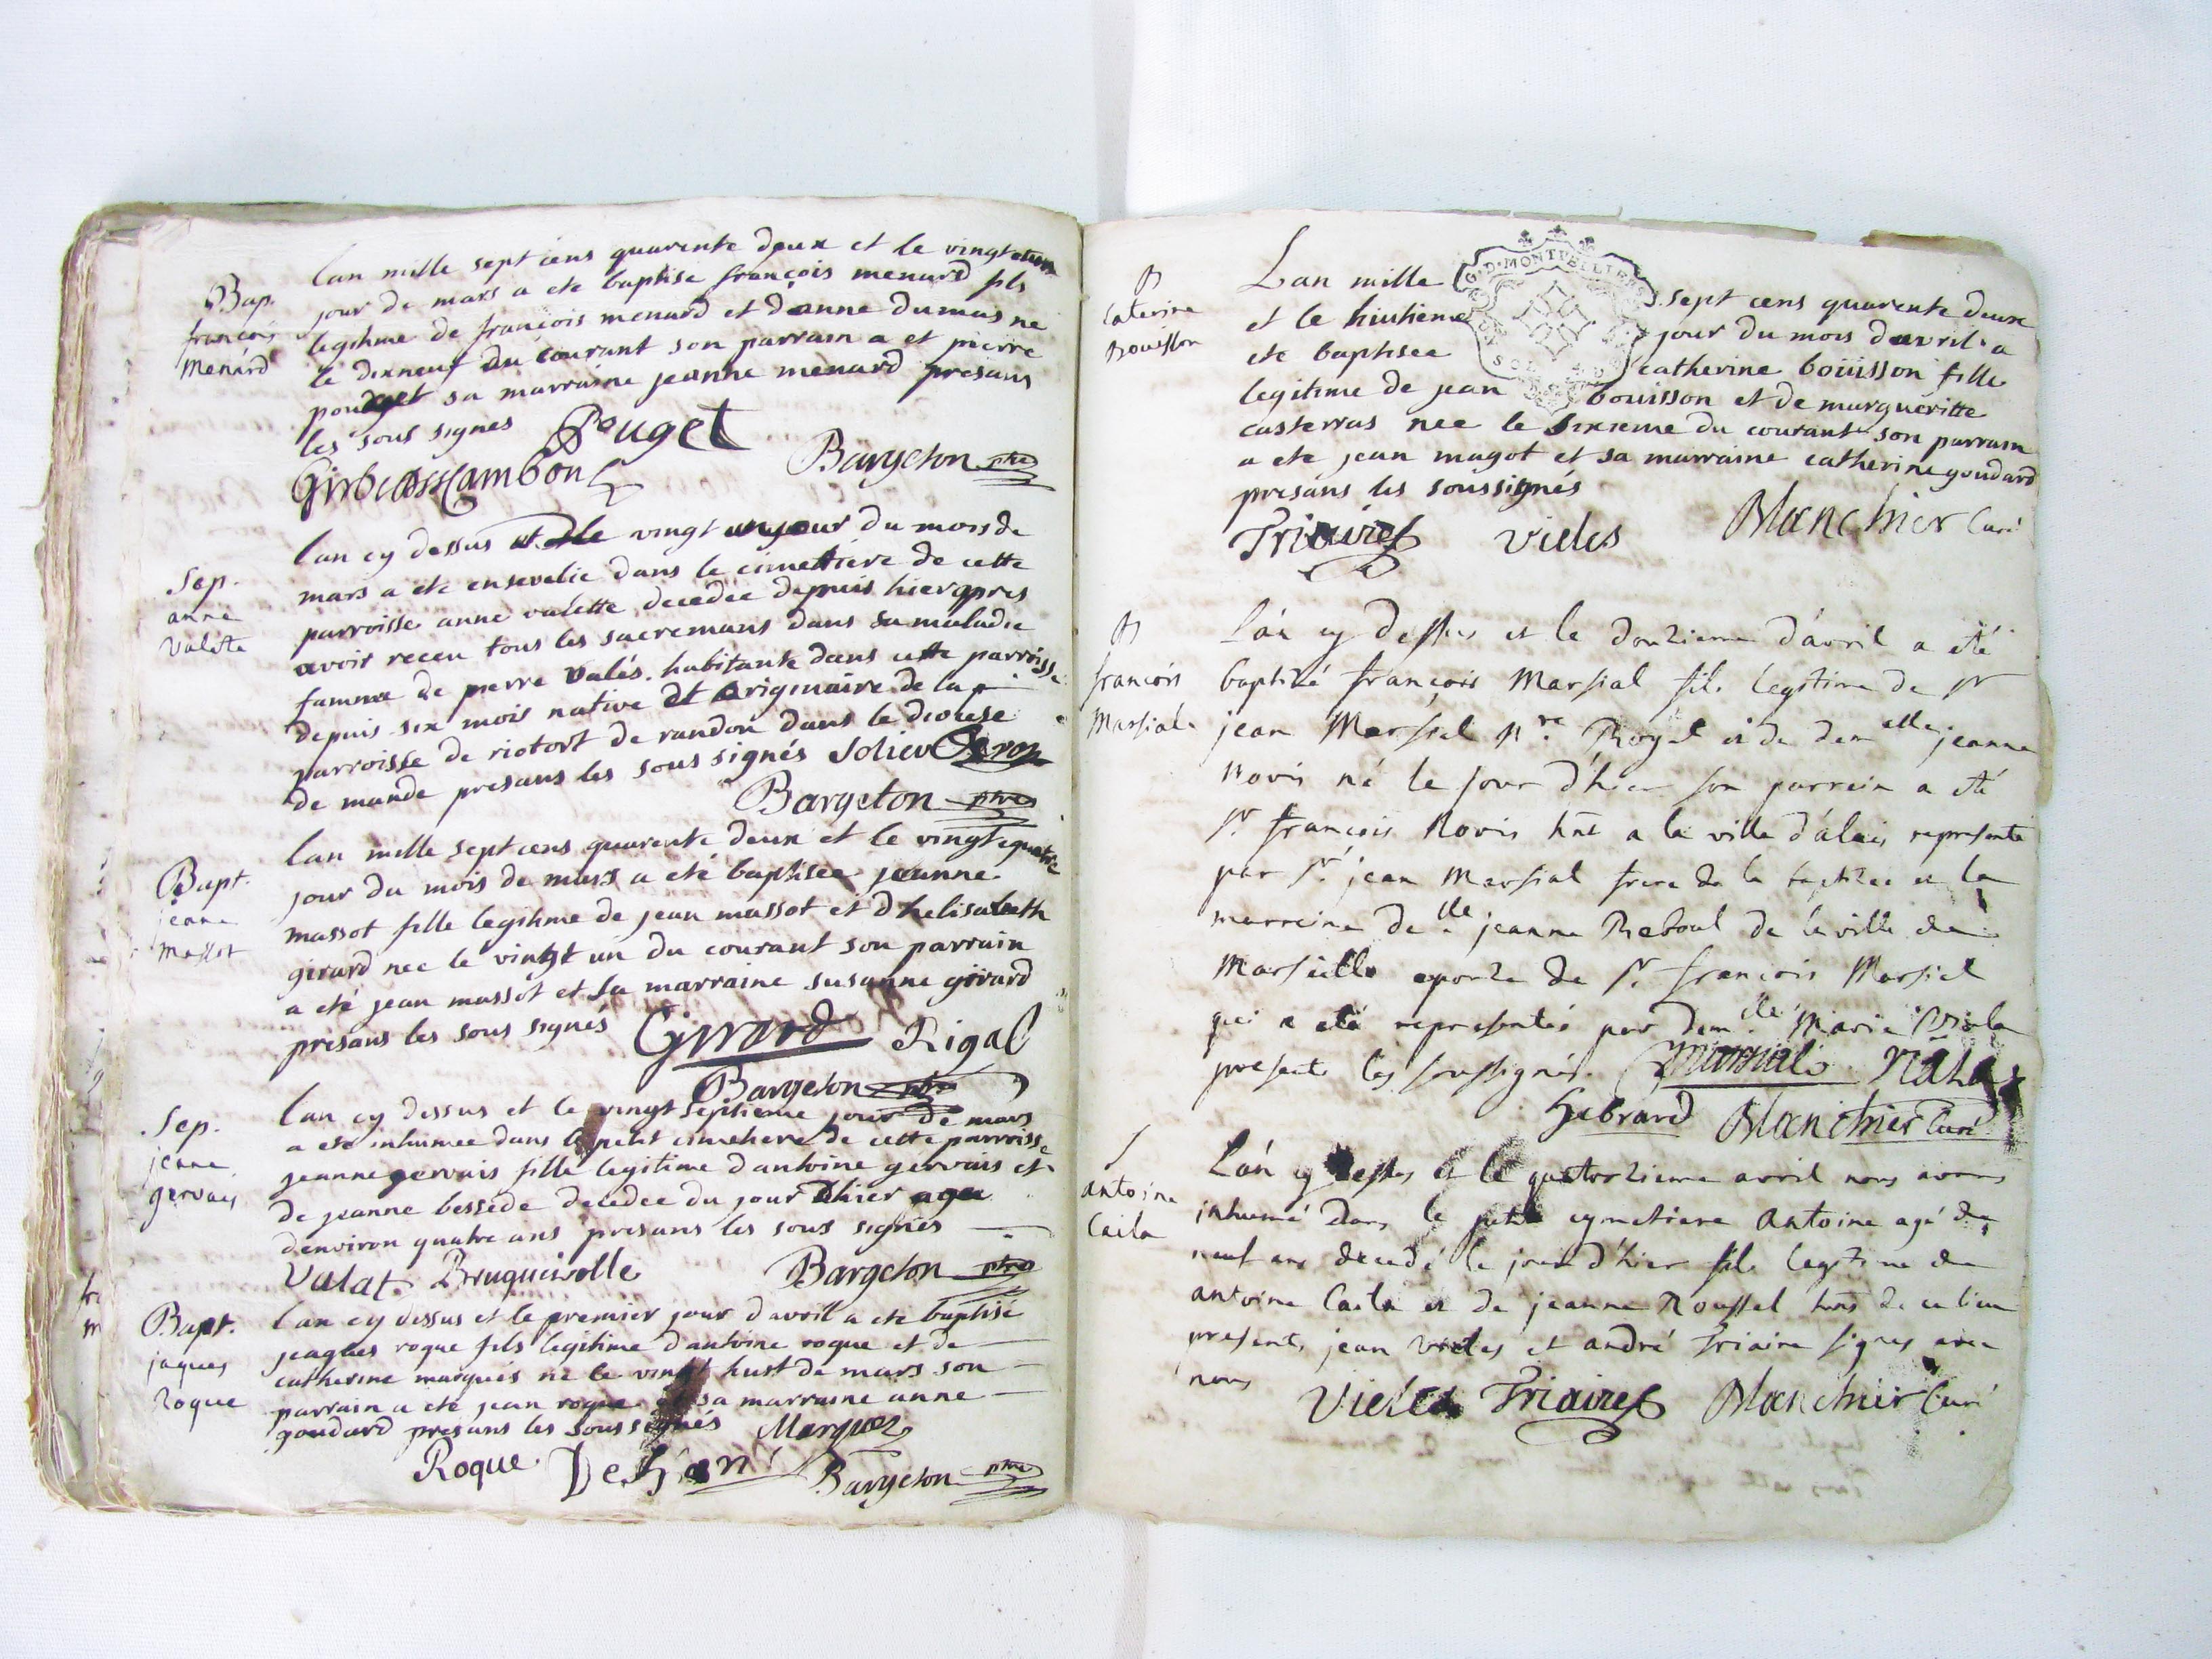 Bap.
françois
menard
lan mille sept cens quarente deux et le vingt
jour de mars a ete baptise françois menard fils
legitime de françois menard et danne dumas ne
le dixneuf du courant son parrain a et pierre
pouget sa marraine jeanne menard presans
les sous signes Pouget
Cambon Bargeton ptre
Sep.
anne
valette
lan cy dessus et le vingt un jour du mois de
mars a ete ensevelie dans le cimettiere de cette
parroisse anne valette decedée depuis hier apres
avoir receu tous les sacremans dans sa maladie
famme de pierre valés habitante dans cette parroisse
depuis six mois native et originaire de la
parroisse de riotort de randon dans le diocese
de mande presans les sous signés Solier
Bargeton ptre
Bapt.
jeane
massot
lan mille sept cens quarente deux et le vingt quatre
jour du mois de mars a eté baptisee jeanne
massot fille legitime de jean massot et dhelisabeth
girard nee le vingt un du courant son parrain
a eté jean massot et sa marraine susanne girard
presans les sous signés Girard Rigal
Bargeton ptre
Sep.
jeane
gervais
lan cy dessus et le vingt septieme jour de mars
a ete inhumee dans le petit cimetiere de cette parroisse
jeanne gervais fille legitime dantoine gervais et
de jeanne bessede decedee du jour dhier agee
denviron quatre ans presans les sous signés
valat Bruguirolle Bargeton ptre
Bapt.
jaques
Roque
lan cy dessus et le premier jour davril a ete baptisé
jeaques roque fils legitime dantoine roque et de
catherine marques né le vingt huit de mars son
parrain a eté jean roque et sa marraine anne
goudard presans les soussignés Marques
Roque Bargeton ptre
B
Caterine
Bouisson
Lan mille sept cens quarente deux
et le huitieme jour du mois davril a
ete baptisee catherine bouisson fille
legitime de jean bouisson et de margueritte
casterras nee le sixieme du courant son parrain
a ete jean magot et sa marraine catherine goudard
presans les soussignés
Triaire vieles Blanchier Curé
G.D. MONTPELLIER
B
françois
Marsial
L'an cy dessus et le douzieme d'avril a eté
baptizé françois Marsial fils legitime de sr
jean Marsial nre Royal et de demelle jeanne
Rovis né le jour d'hier son parrein a eté
sr françois Rovis hnt a la ville d'alais represente
par sr jean Marsial frere de la baptizee et la
marreine delle jeanne Reboul de la ville de
Marseille epouze de sr françois Marsiel
qui a eté representée par demlle Marie
presents les soussignés. Marsial
Gebrard Blanchier Curé
S
antoine
Caila
L'an cy dessus et le quatorzieme avril nous avons
inhumé dans le petit cymetiere antoine agé de
neuf ans decedé le jour d'hier fils legitime de
antoine Caila et de jeanne Roussel hnts de ce lieu
presents jean vieles et andré Triaire signes avec
nous
Vieles Triaire Blanchier Curé